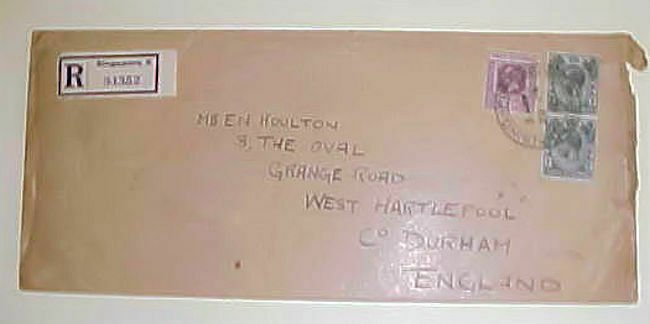 R
31352
MR EN HOULTON
8, THE OVAL
GRANGE ROAD
WEST HARTLEPOOL
Co DURHAM
ENGLAND